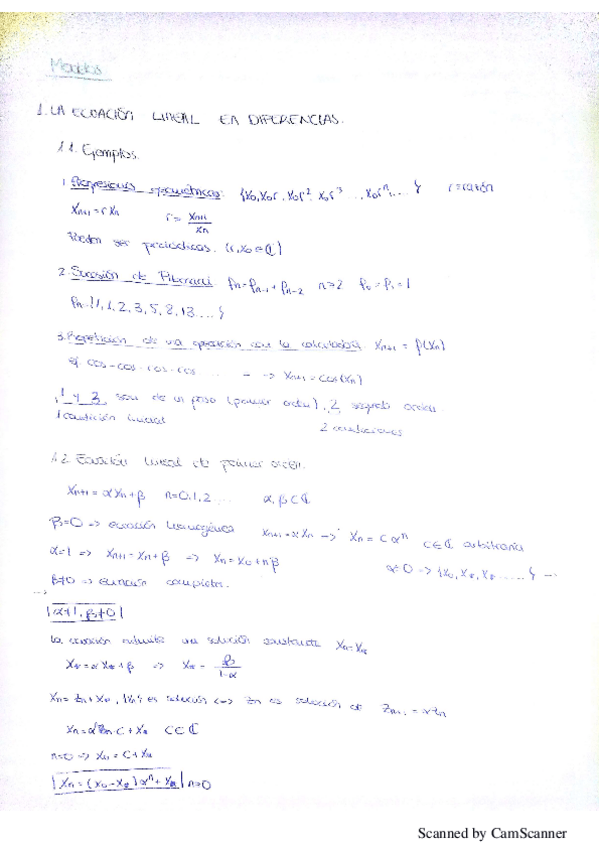 Modelos
1. LA ECUACIÓN LINEAL EN DIFERENCIAS.
1.1. Ejemplos.
1. Progresiones geométricas: {x₀, x₀r, x₀r², x₀r³ ..., x₀rⁿ, ... } r=razón
xₙ₊₁=r xₙ r = xₙ₊₁/xₙ
Pueden ser periódicas. (r, x₀ ∈ ℂ)
2. Sucesión de Fibonacci fₙ=fₙ₋₁+fₙ₋₂ n≥2 f₀=f₁=1
fₙ {1,1,2,3,5,8,13....}
3. Repetición de una operación con la calculadora. xₙ₊₁ = f(xₙ)
ej. cos-cos-cos-cos ... → xₙ₊₁ = cos(xₙ)
1 y 3 son de un paso (primer orden), 2 segundo orden
1 condición inicial 2 condiciones
1.2. Ecuación lineal de primer orden.
xₙ₊₁ = αxₙ+β n=0,1,2 ... α,β ∈ ℂ
β=0 => ecuación homogénea xₙ₊₁=αxₙ → xₙ = C αⁿ C∈ℂ arbitraria
α=1 => xₙ₊₁=xₙ+β => xₙ=x₀+nβ
β≠0 => ecuación completa.
α≠1, β≠0
La ecuación admite una solución constante xₙ=x*
x* = αx*+β => x* = β/(1-α)
xₙ = zₙ+x*, es solución <=> zₙ es solución de zₙ₊₁=αzₙ
C∈ℂ
n=0 =>
xₙ = (x₀-x*)αⁿ+x* n≥0
Scanned by CamScanner